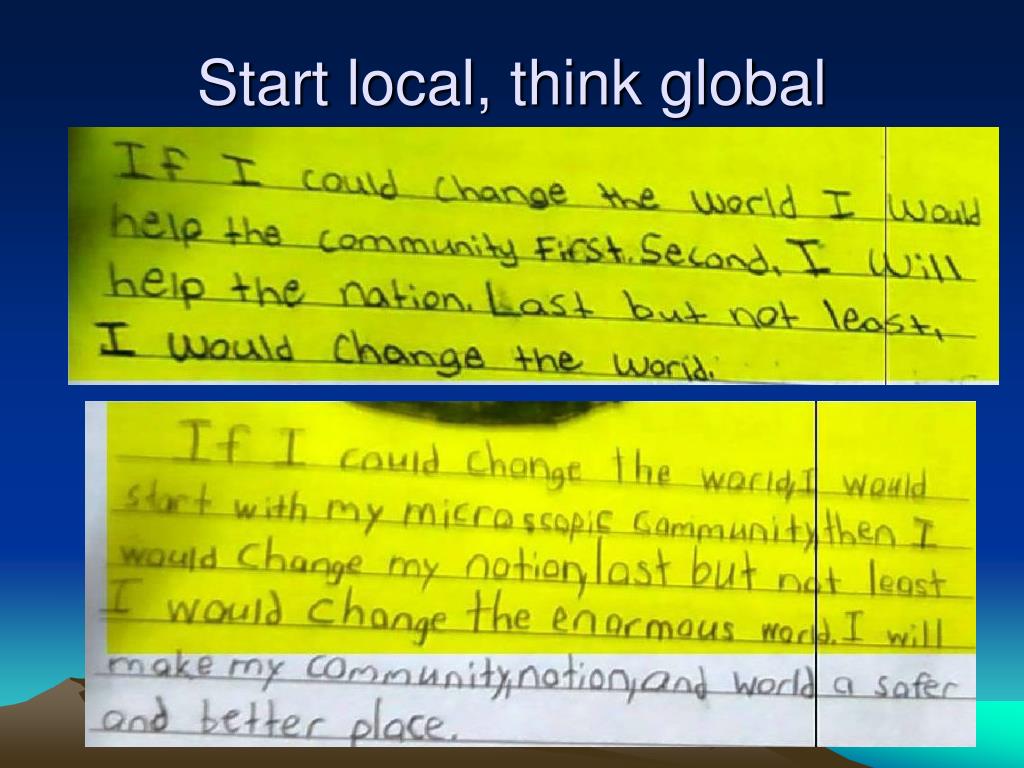 Start local, think global
If I could change the world I would
help the community First. Second, I will
help the nation. Last but not least,
I would change the world.
If I could change the world, I would
start with my microssopic community, then I
would change my nation, last but not least
I would change the enormous world. I will
make my community, nation, and world a safer
and better place.